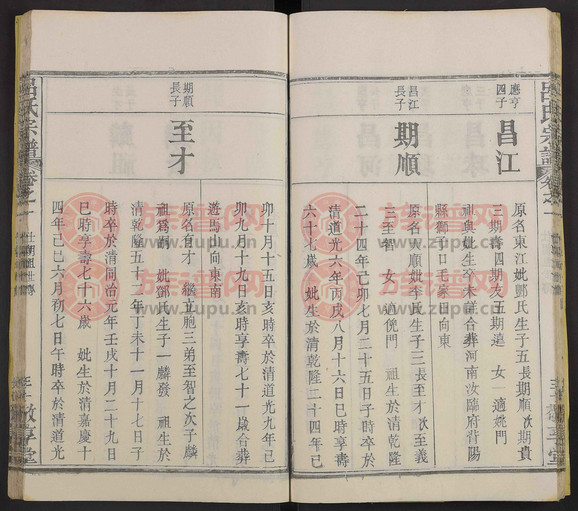 呂氏宗譜
卷之一
三十
敬享堂
應亨
四子
昌江
原名東江妣鄭氏生子五長期順次期貴
三期壽四期友五期遠 女一適姚門
祖與妣生卒未詳合葬河南汝臨府背陽
縣獅子口毛家田向東
昌江
長子
期順
原名大順妣李氏生子三長至才次至義
三至智 女一適侊門 祖生於清乾隆
二十四年己卯七月二十五日子時卒於
清道光六年丙戌八月十六日巳時享壽
六十七歲 妣生於清乾隆二十四年己
卯十月十五日亥時卒於清道光九年己
卯九月十九日亥時享壽七十一歲合葬
遊馬山向東南
期順
長子
至才
原名百才 繼立胞三弟至智之次子麟
祖為嗣 妣鄧氏生子一麟發 祖生於
清乾隆五十二年丁未十一月十一日子
時卒於清同治元年壬戌十月二十九日
巳時享壽七十六歲 妣生於清嘉慶十
四年己巳六月初七日午時卒於清道光
呂氏宗譜
卷之一
仕朝祖世傳
三十
敬享堂
族谱网
www.zupu.cn